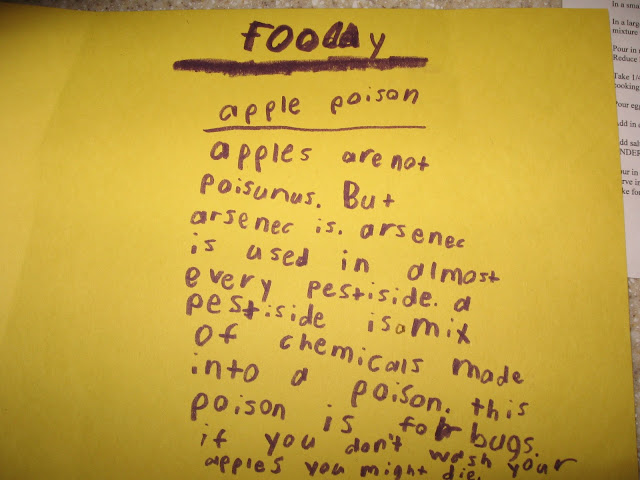 FOODDY
apple poison
apples are not
poisunus. But
arsenec is. arsenec
is used in almost
every pestiside. a
pestiside is a mix
of chemicals made
into a poison. this
poison is for bugs.
if you don't wash your
apples you might die.
In a sma
In a larg
mixture
Pour in
Reduce
Take 1/4
cooking
Pour egg
Add in
Add salt